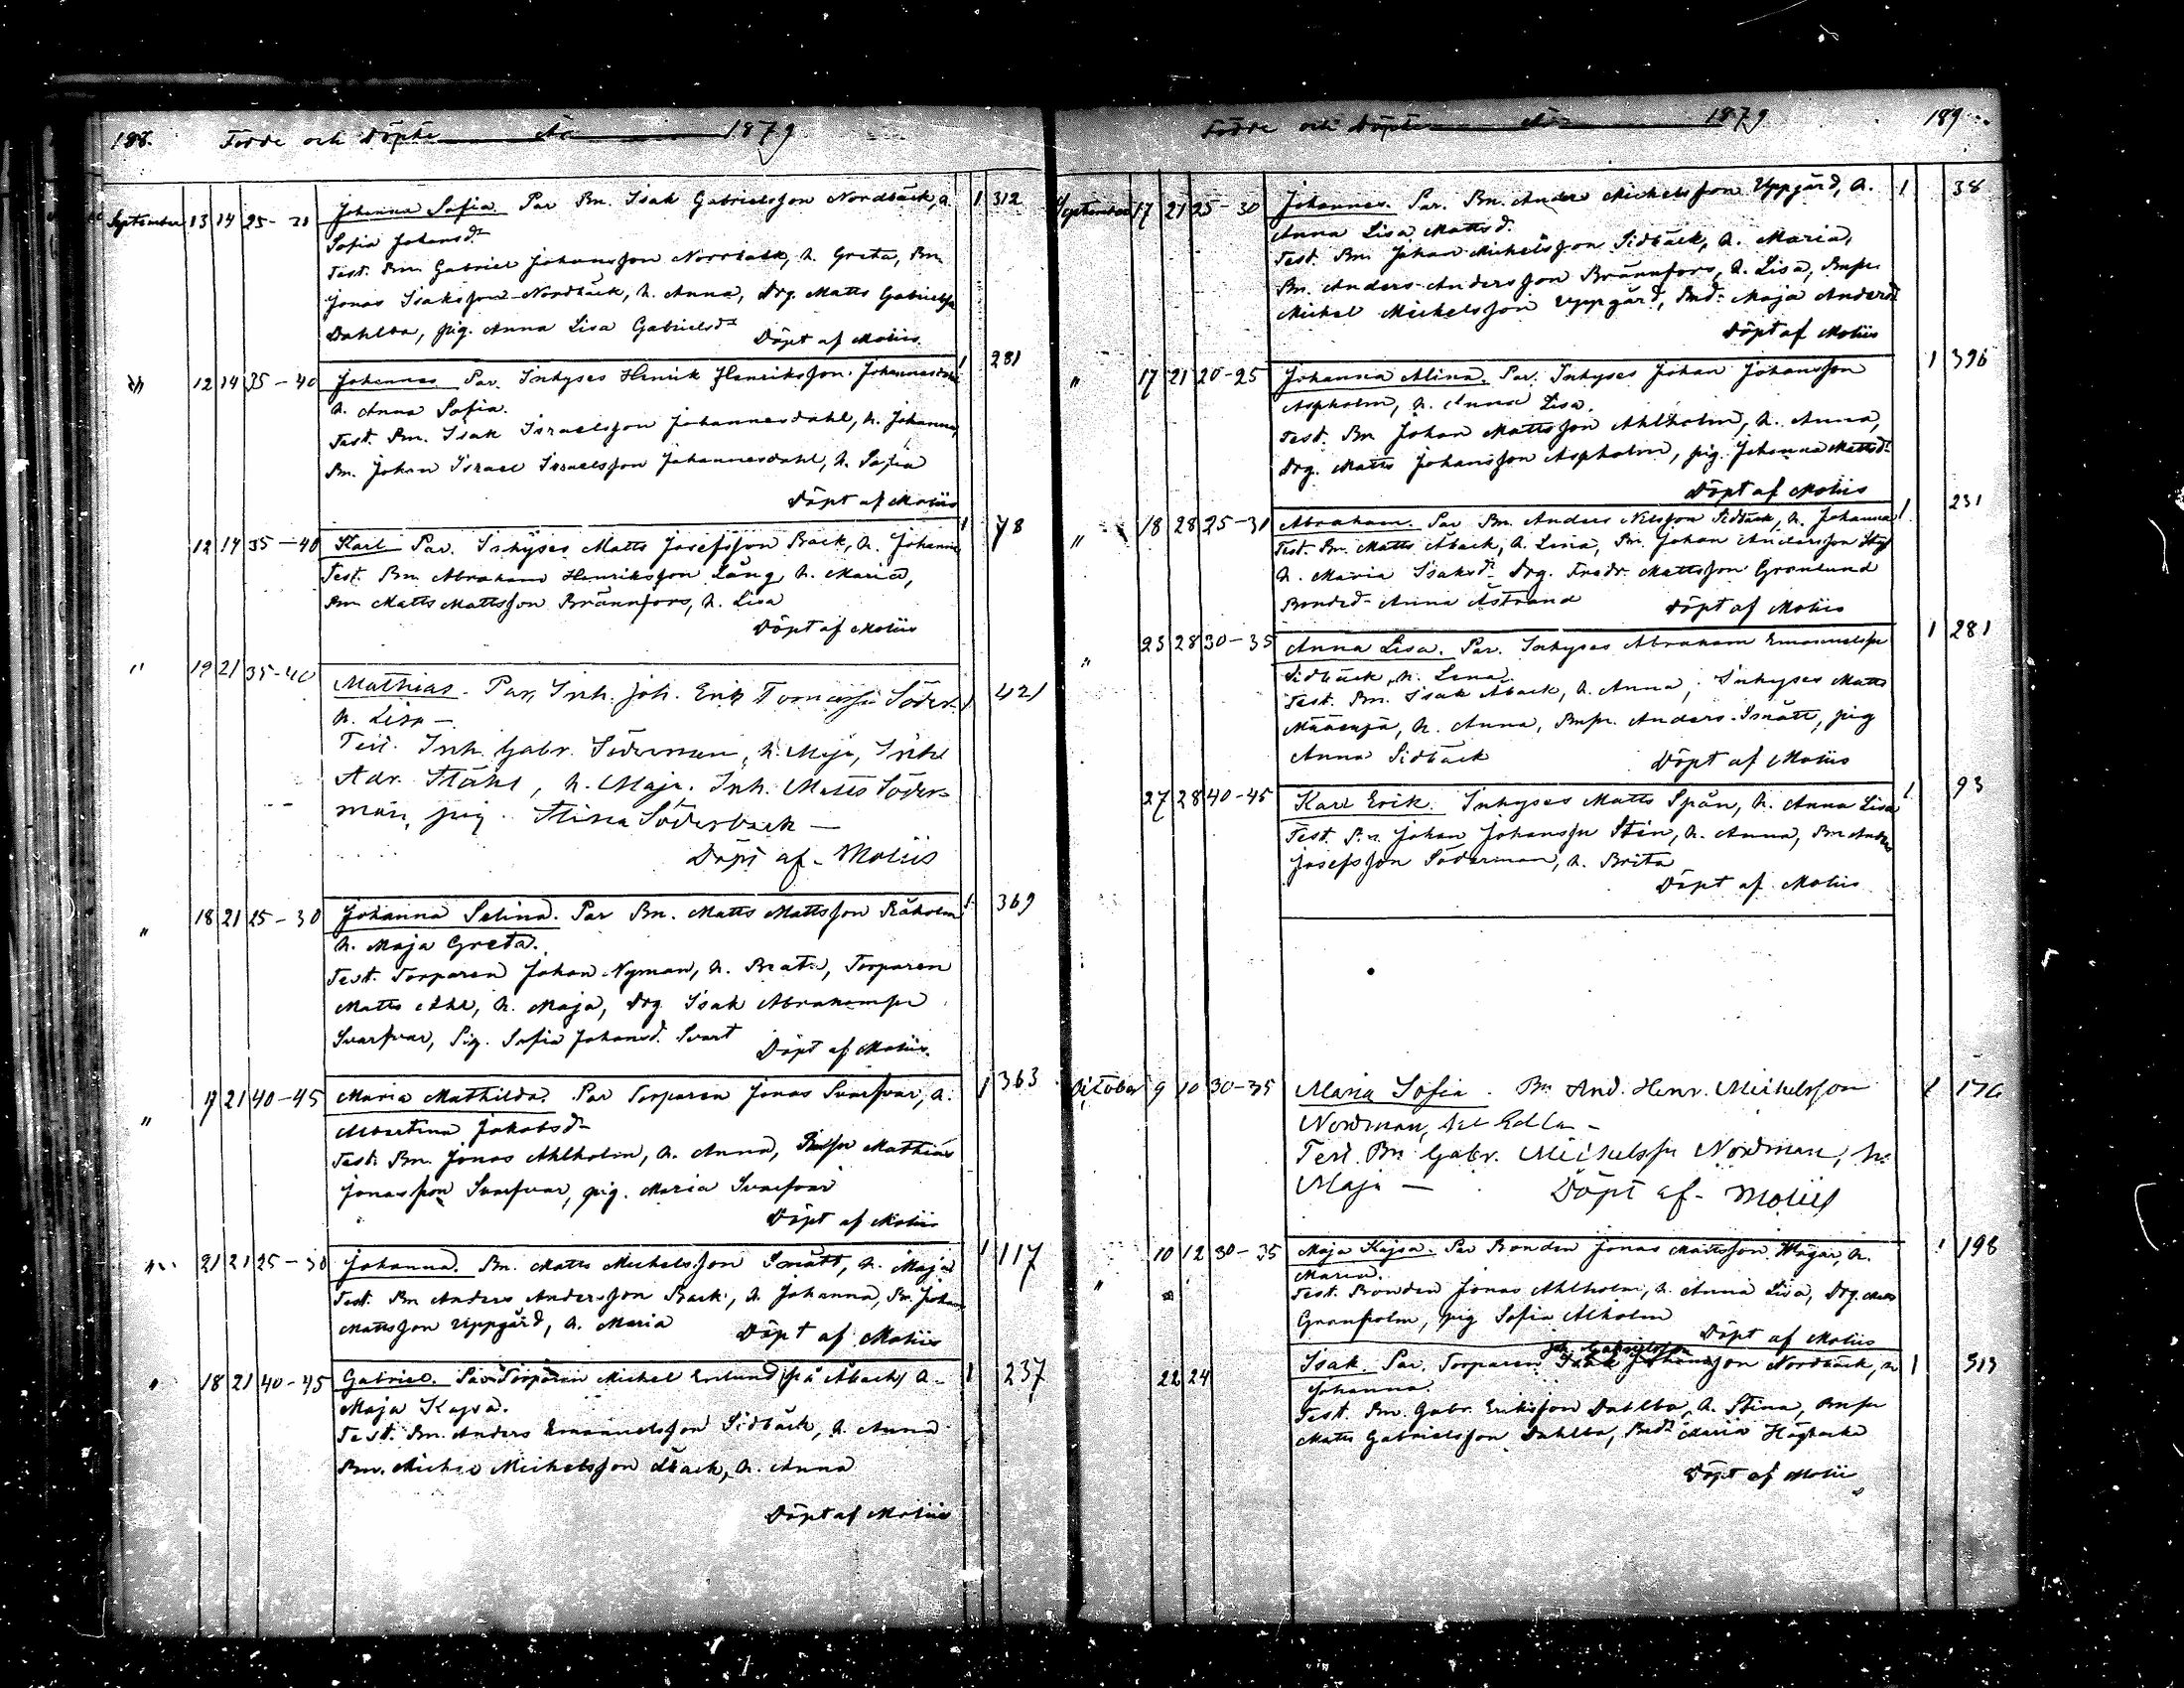 188. Födde och Döpte År 1879
September 13 14 25-30 Johanna Sofia. Par Bn. Isak Gabrielsson Nordbäck, h. 1 312
Sofia Johansd:
Test. Bn. Gabriel Johansson Norrback, h. Greta, Bn.
Jonas Isaksson Nordbäck, h. Anna, Drg. Matts Gabrielss:
Dahlbo, pig. Anna Lisa Gabrielsd: Döpt af Moliis
12 14 35-40 Johannes Par. Inhyses Henrik Henriksson Johannesdahl 1 281
h. Anna Sofia.
Test. Bn. Isak Israelsson Johannesdahl, h. Johanna,
Bn. Johan Israel Israelsson Johannesdahl, h. Sofia
Döpt af Moliis
12 14 35-40 Karl Par. Inhyses Matts Josefsson Back, h. Johanna 1 78
Test. Bn. Abraham Henriksson Lång, h. Maria,
Bn. Matts Mattsson Brännfors, h. Lisa
Döpt af Moliis
" 19 21 35-40 Mathias. Par, Inh. Joh. Erik Söder 1 421
h. Lisa –
Test. Inh. Gabr. Söderman, h. Maja, Inh.
Adr. Ståhl, h. Maja. Inh. Matts Söder-
man, pig. Stina Söderback –
Döpt af Moliis
" 18 21 25-30 Johanna Selina. Par Bn. Matts Mattsson Råholm 1 369
h. Maja Greta.
Test. Torparen Johan Nyman, h. Beata, Torparen
Matts Ahl, h. Maja, Drg. Isak Abrahamss:
Svarfvar, Pig. Sofia Johansd. Svart Döpt af Moliis.
" 17 21 40-45 Maria Mathilda. Par Torparen Jonas Svarfvar, h. 1 363
Albertina Jakobsd:
Test. Bn. Jonas Ahlholm, h. Anna, Mathias
Jonasson Svarfvar, pig. Maria Svarfvar
Döpt af Moliis
" 21 21 25-30 Johanna. Bn. Matts Michelsson Smått, h. Maja 1 117
Test. Bn Anders Andersson Back, h. Johanna, Bn. Johan
Mattsson Uppgård, h. Maria Döpt af Moliis
" 18 21 40-45 Gabriel. Par Torparen Michel Enlund på Åback, h. 1 237
Maja Kajsa.
Test. Bn. Anders Emanuelsson Sidbäck, h. Anna
Bn. Michel Michelsson Åback, h. Anna
Döpt af Moliis
Födde och Döpte År 1879 189
September 17 21 25-30 Johannes. Par. Bn. Anders Michelsson Uppgård, h. 1 38
Anna Lisa Mattsd.
Test. Bn. Johan Michelsson Sidbäck, h. Maria,
Bn. Anders Andersson Brännfors, h. Lisa, Bnss:
Michel Michelsson Uppgård, Bnd: Maja Andersd
Döpt af Moliis
" 17 21 20-25 Johanna Alina. Par. Inhyses Johan Johansson 1 396
Aspholm, h. Anna Lisa.
Test. Bn. Johan Mattsson Ahlholm, h. Anna,
Drg. Matts Johansson Aspholm, pig. Johanna Mattsd:
Döpt af Moliis
" 18 28 25-31 Abraham. Par Bn. Anders Nelsson Sidbäck, h. Johanna 1 231
Test. Bn. Matts Åback, h. Lena, Bn. Johan Andersson
h. Maria Isaksd: Drg. Fredr. Mattsson Grönlund
Bonded. Anna Åstrand Döpt af Moliis
" 23 28 30-35 Anna Lisa. Par. Inhyses Abraham Emanuelss: 1 281
Sidbäck, h. Lena.
Test. Bn. Isak Åback, h. Anna, Inhyses Matts
h. Anna, Bnss. Anders Smått, pig
Anna Sidbäck Döpt af Moliis
27 28 40-45 Karl Erik. Inhyses Matts Spån, h. Anna Lisa 1 93
Test. Bn. Johan Johansson Sten, h. Anna, Bn Anders
Josefsson Söderman, h. Brita
Döpt af Moliis
October 9 10 30-35 Maria Sofia. Bn And. Henr. Michelsson 1 176
Nordman,
Test. Bn Gabr. Michelsson Nordman, h.
Maja – Döpt af Moliis
" 10 12 30-35 Maja Kajsa. Par Bonden Jonas Mattsson Wägar, h. 1 198
Maria.
Test. Bonden Jonas Ahlholm, h. Anna Lisa, Drg. Matts
Granholm, pig Sofia Alholm
Döpt af Moliis
22 24 Isak Par. Torparen Joh. Gabrielsson Nordbäck, h 1 313
Johanna.
Test. Bn. Gabr. Eriksson Dahlbo, h. Stina, Bnss
Matts Gabrielsson Dahlbo, Bnd: Maria Högbacka
Döpt af Moliis